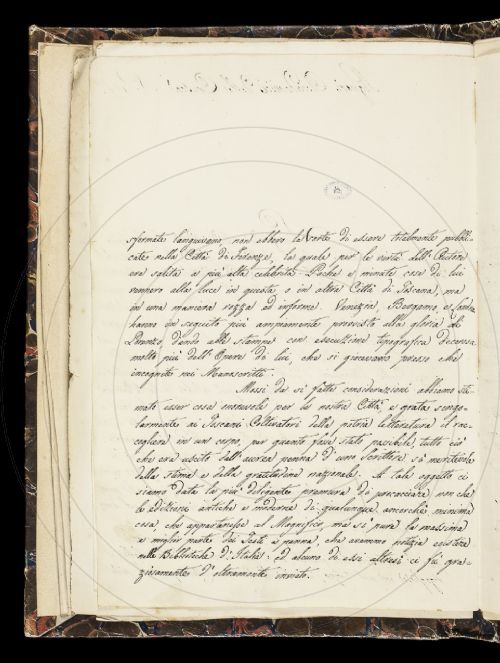 sformate languissero, non ebbero la sorte di essere totalmente pubbli-
cate nella Città di Firenze, la quale per le virtù dell'Autore
era salita a più alta celebrità. Poche e minute cose di lui
vennero alla luce in questa o in altra Città di Toscana, ma
in una maniera rozza ed informe. Venezia, Bergamo, e Londra
hanno in seguito più ampiamente provvisto alla gloria di
Lorenzo, dando alle stampe con esecuzione tipografica decorosa
molte più dell'Opere di lui, che si giacevano presso che
incognite nei Manoscritti.
Mossi da sì fatte considerazioni abbiamo sti-
mato esser cosa onorevole per la nostra Città, e grata singo-
larmente ai Toscani Coltivatori della patria letteratura il rac-
cogliere in un corpo, per quanto fosse stato possibile, tutto ciò
che era uscito dall'aurea penna d'uno Scrittore sì meritevole
della stima e della gratitudine nazionale. A tale oggetto ci
siamo data la più diligente premura di procacciare non che
le edizioni antiche e moderne di qualunque ancorchè minima
cosa, che appartenesse al Magnifico, ma sì pure la massima
e miglior parte dei Testi a penna, che avevamo notizia esistere
nelle Biblioteche d'Italia: ed alcuno di essi altresì ci fù gra-
ziosamente d'oltremonte inviato.